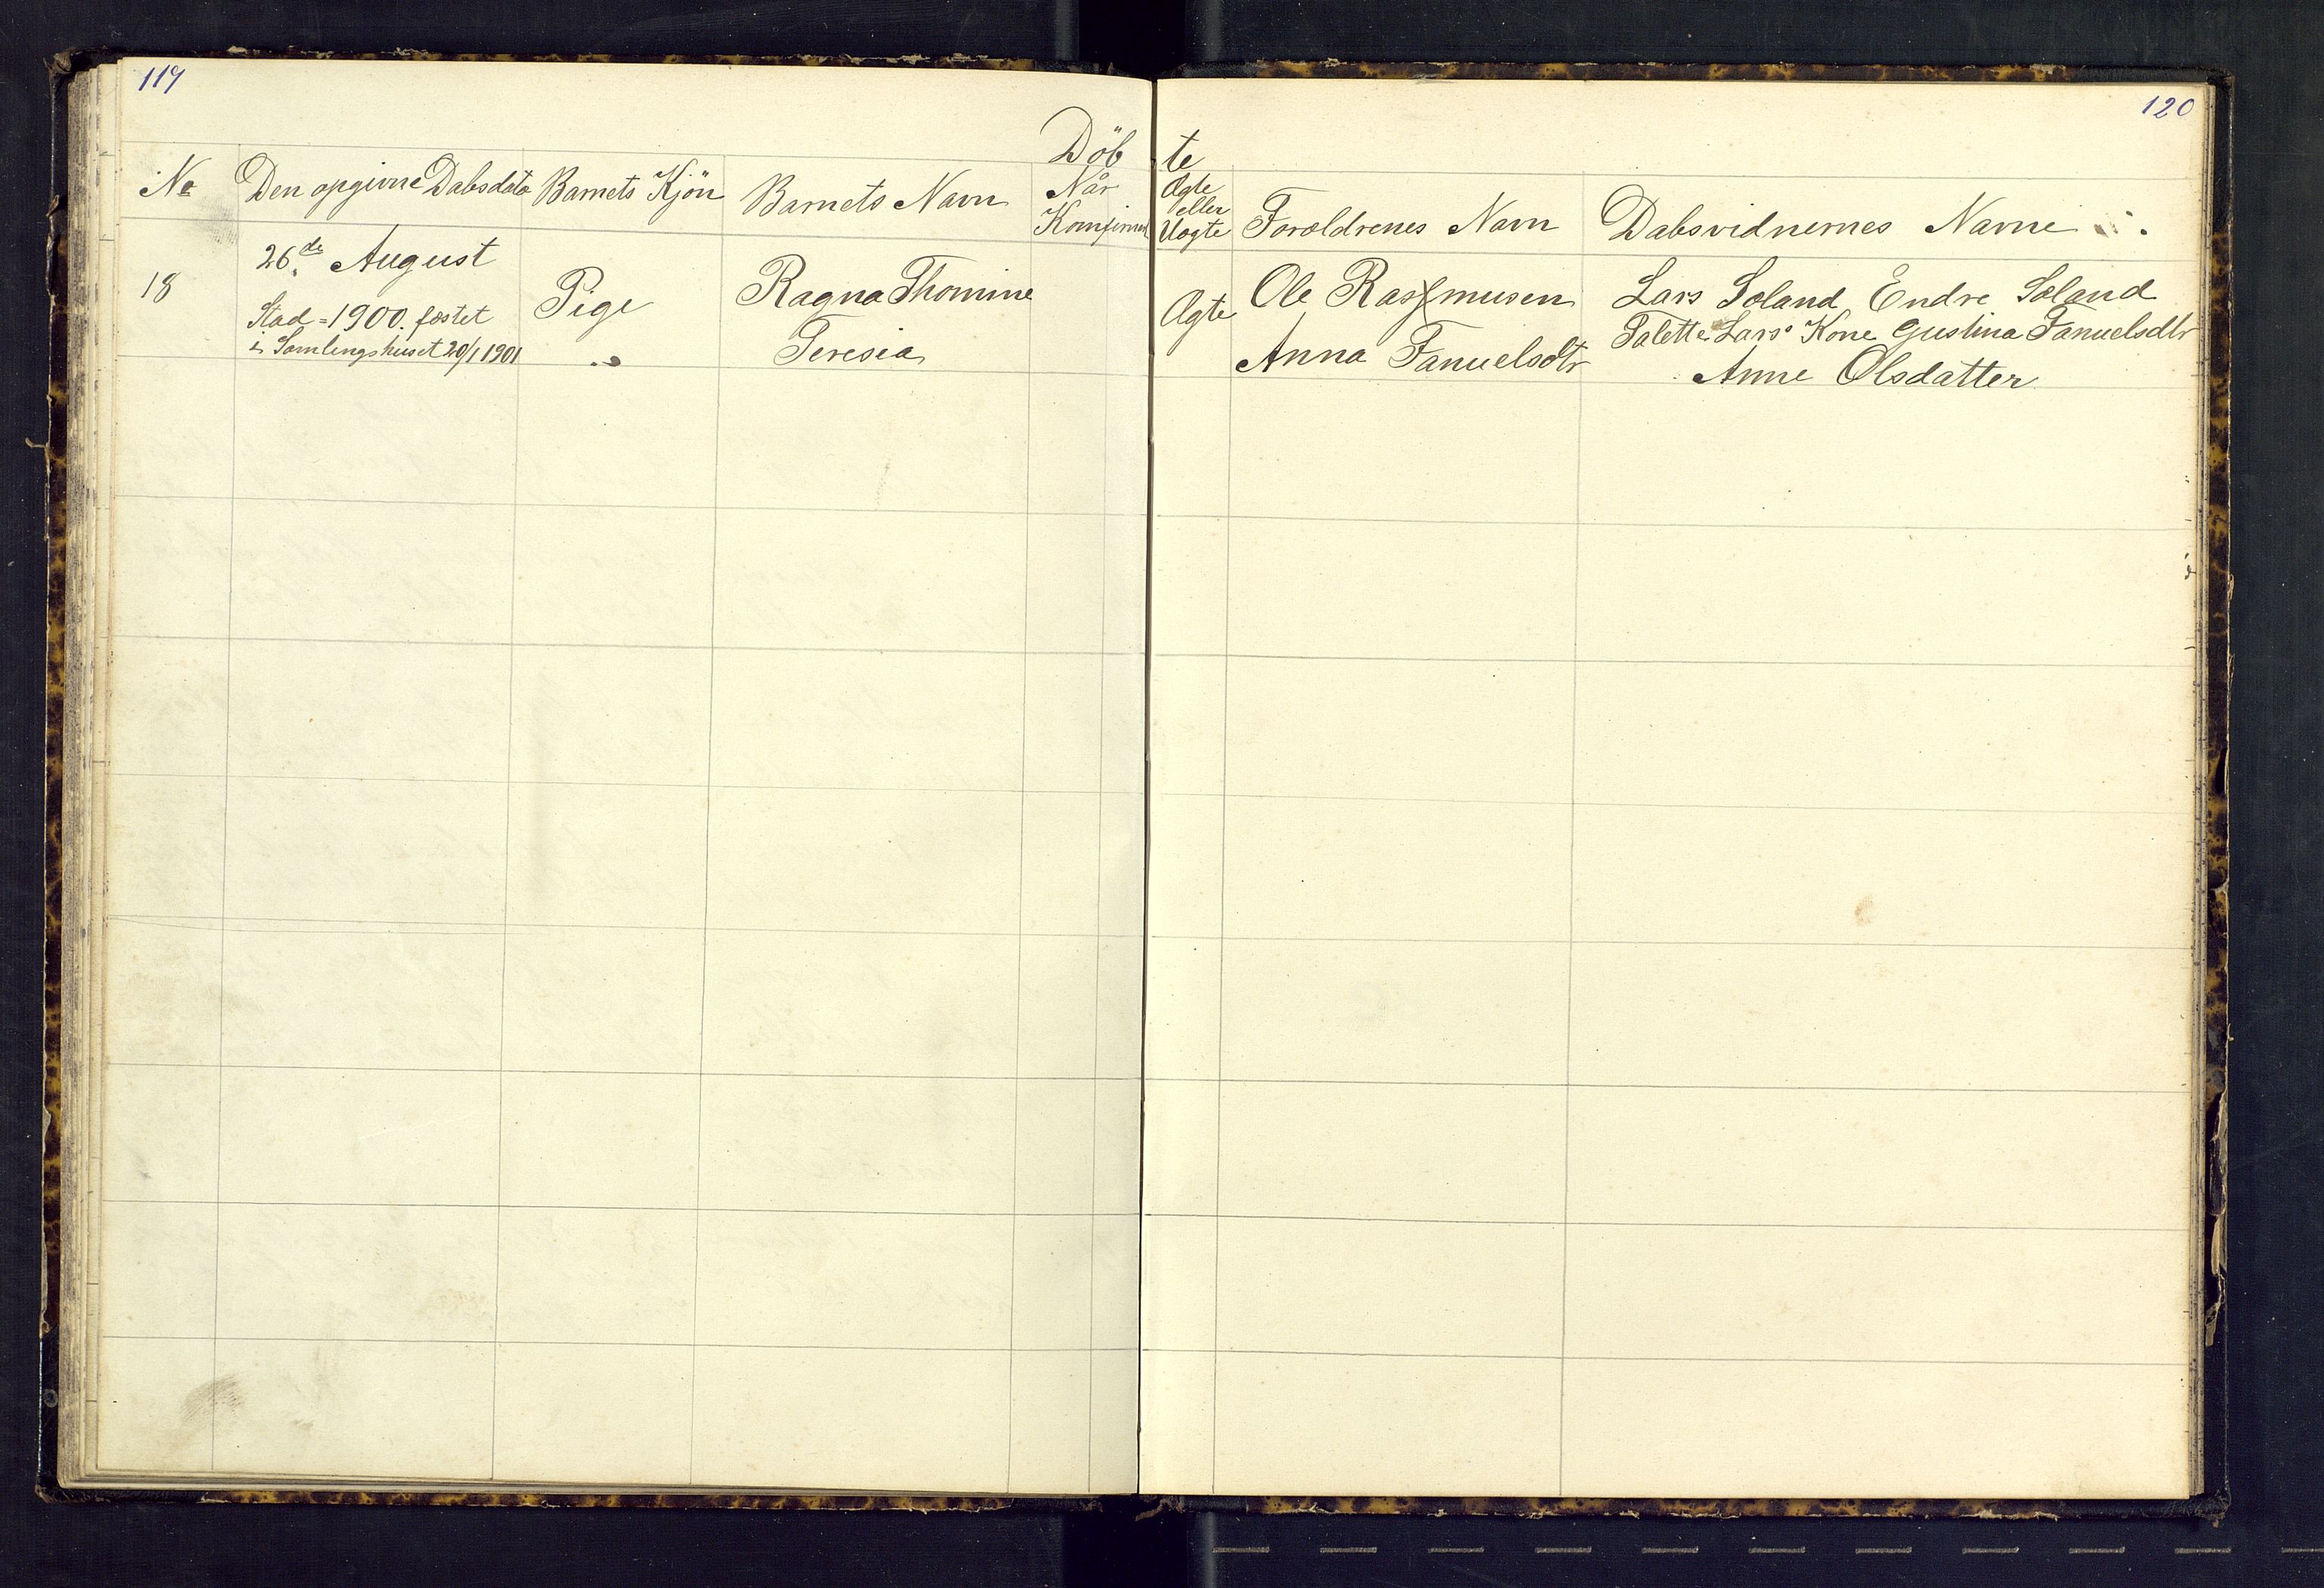 119
120
Döb te
No
Den opgivne Dabsdato
Barnets Kjön
Barnets Navn
Når
Komfirmed
Ægte
eller
Uægte
Foræeldrenes Navn
Dabsvidnernes Navne
18
26de August
Stad = 1900. fæstet
i Samlingshuset 20/1 1901
Pige
"
Ragna Thomine
Teresia
Ægte
Ole Rasmusen
Anna Fanuelsdtr
Lars Soland Endre Soland
Talette Lars' Kone Gustina Fanuelsdtr
Anne Olsdatter